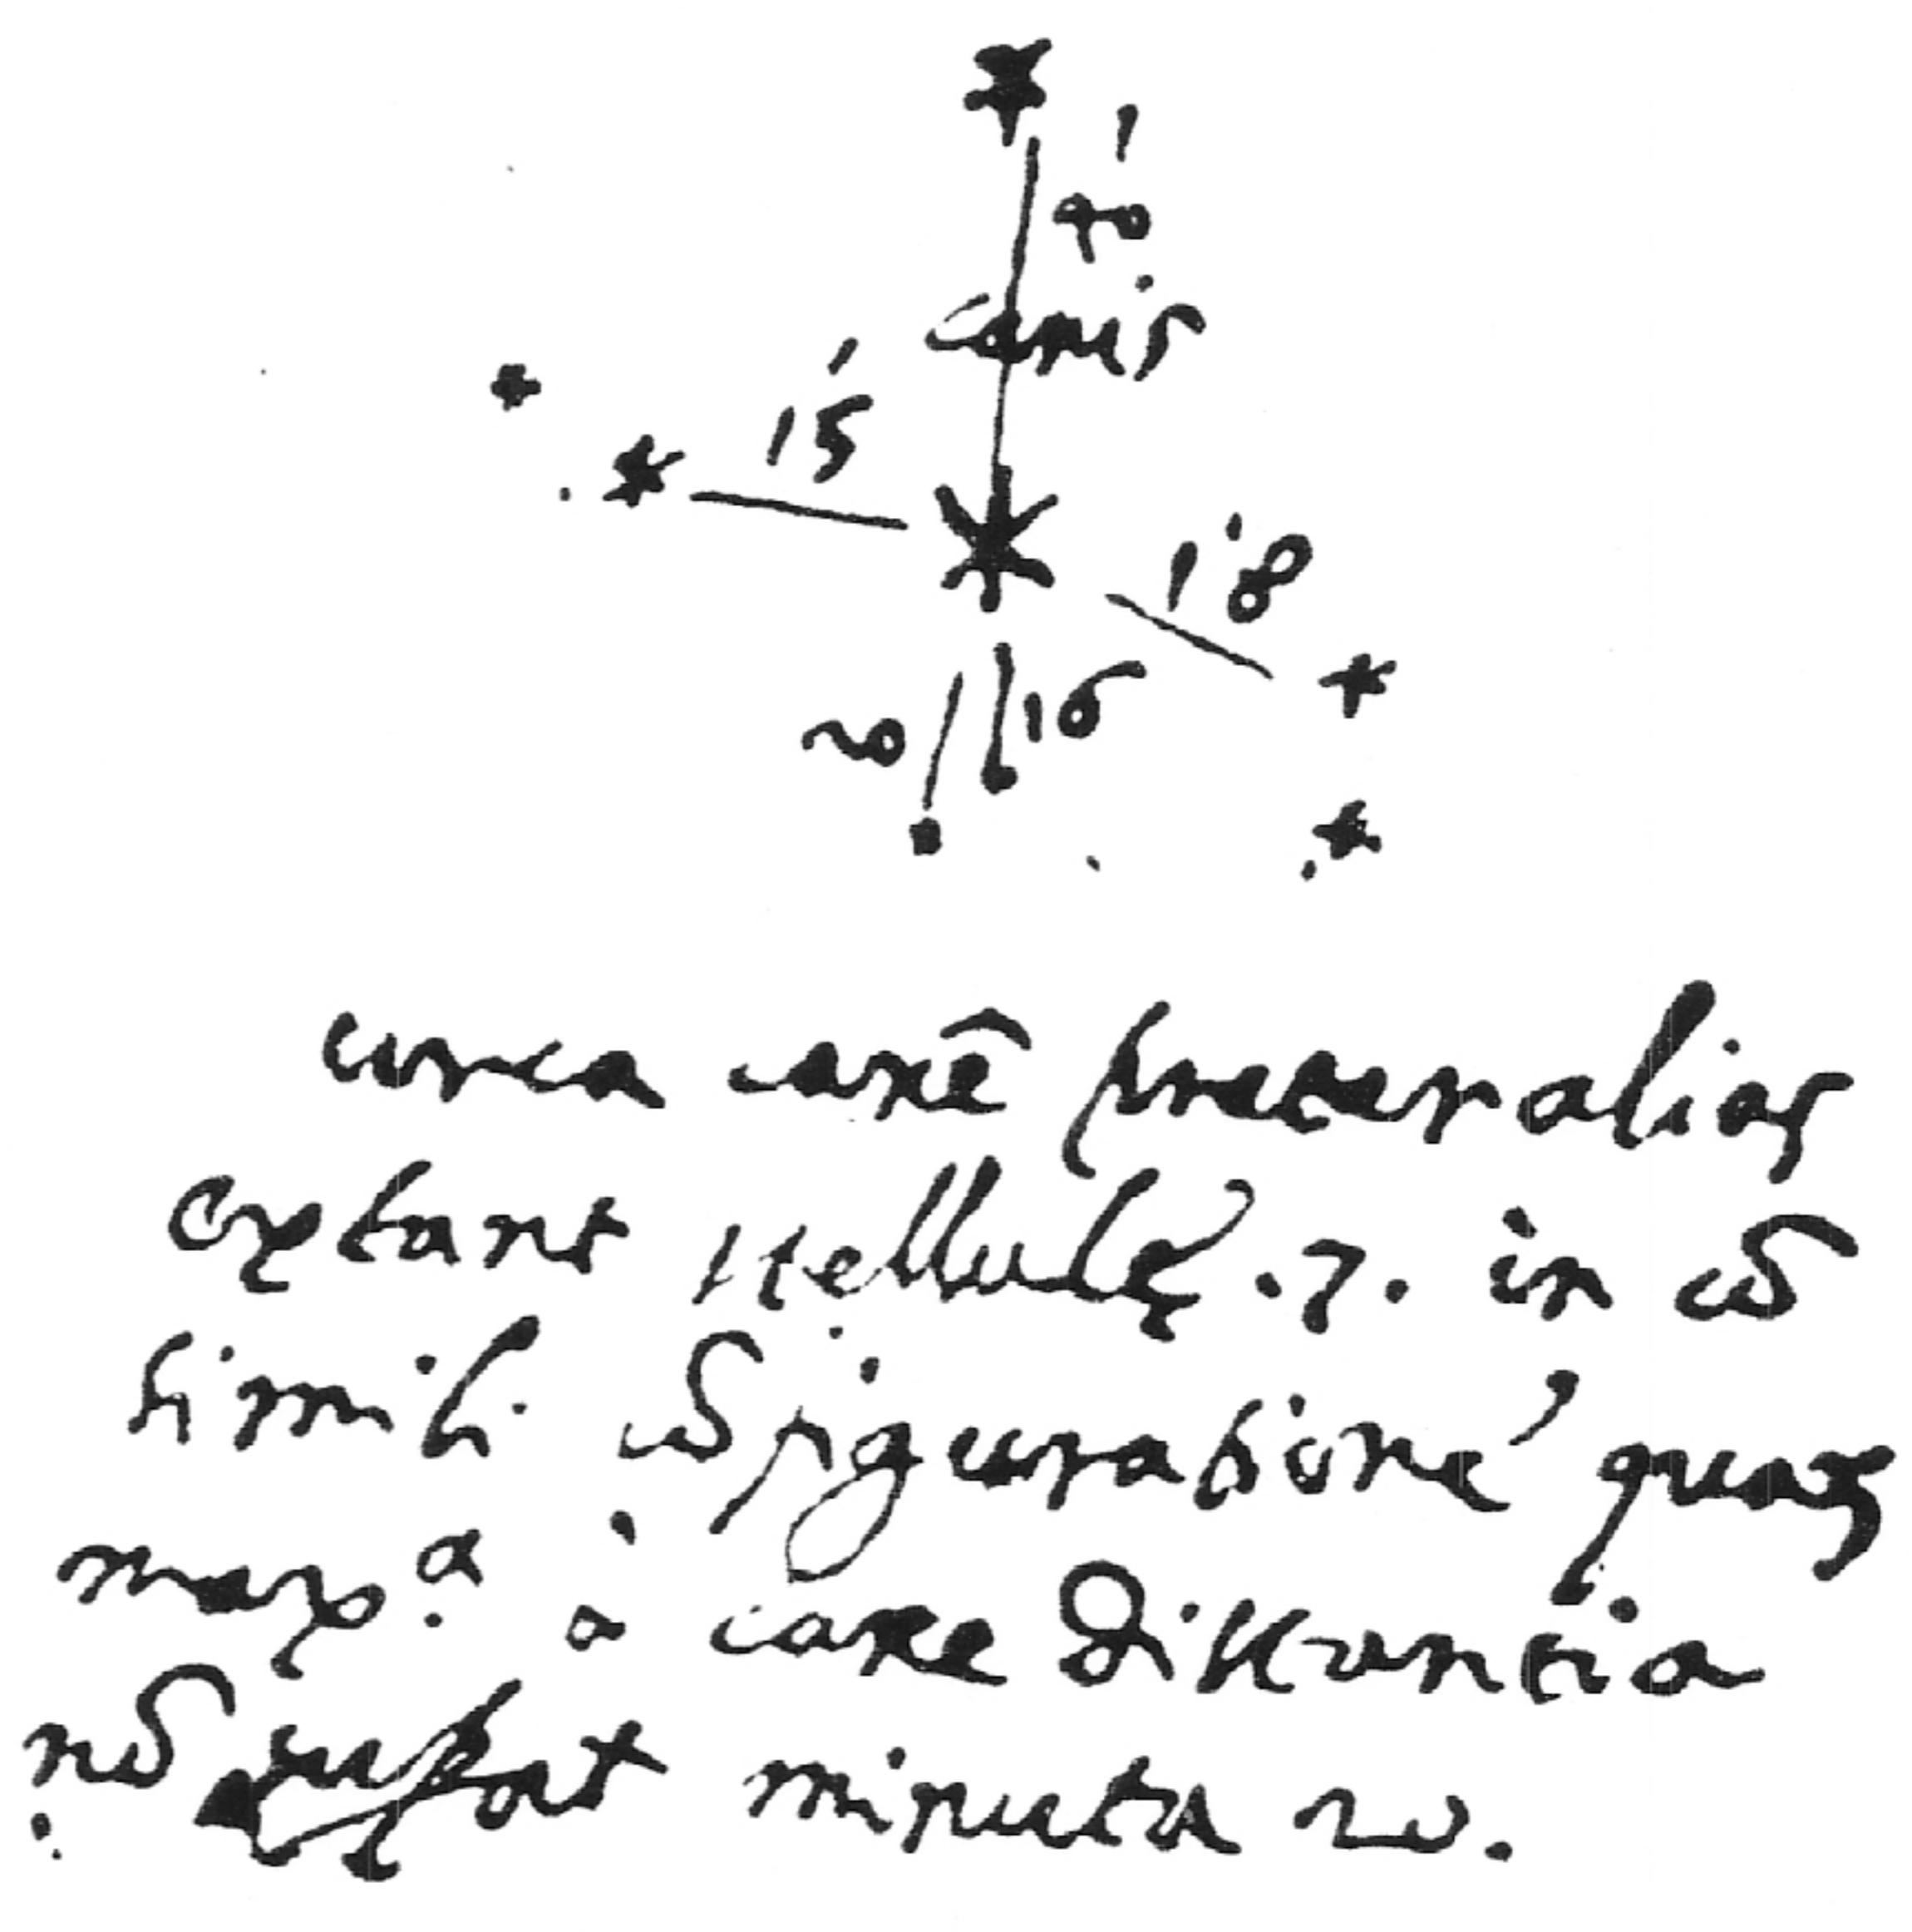 40'
canis
15'
18'
20 16
circa canê preter alias
extant stellulę .7. in cō
simili cōfiguratione quaꝝ
maxª. à cane distantia
nō
minuta 20.